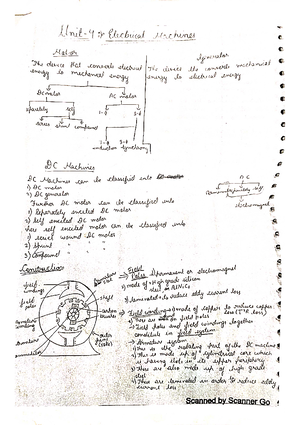 Unit-4 : Electrical Machines
Motor
Generator
The device that converts electrical
energy to mechanical energy
The device the converts mechanical
energy to electrical energy
DC motor
AC motor
Separately
self
1-φ
3-φ
series shunt compound
induction synchronous
DC Machines
DC Machines can be classified into
1) DC motor
2) DC generator
Further DC motor can be classified into
1) Separately excited DC motor
2) Self excited DC motor
here self excited motor can be classified into
1) series wound DC motor
2) shunt " "
3) compound " "
Construction
field
windings
field
poles
armature
winding
armature
shaft
carbon
brushes
outer
Field
Poles
permanent or electromagnet
made of high grade silicon
steel
laminated to reduce eddy current loss
Field windings made of copper to reduce copper
loss
These are on field poles
Field poles and field windings together
constitute as field system
Armature system
This is the rotating part of the DC machine
This is made up of cylindrical core which
is having slots in its upper periphery
These are also made up of high grade
steel
These are laminated in order to reduce eddy
current loss
Scanned by Scanner Go